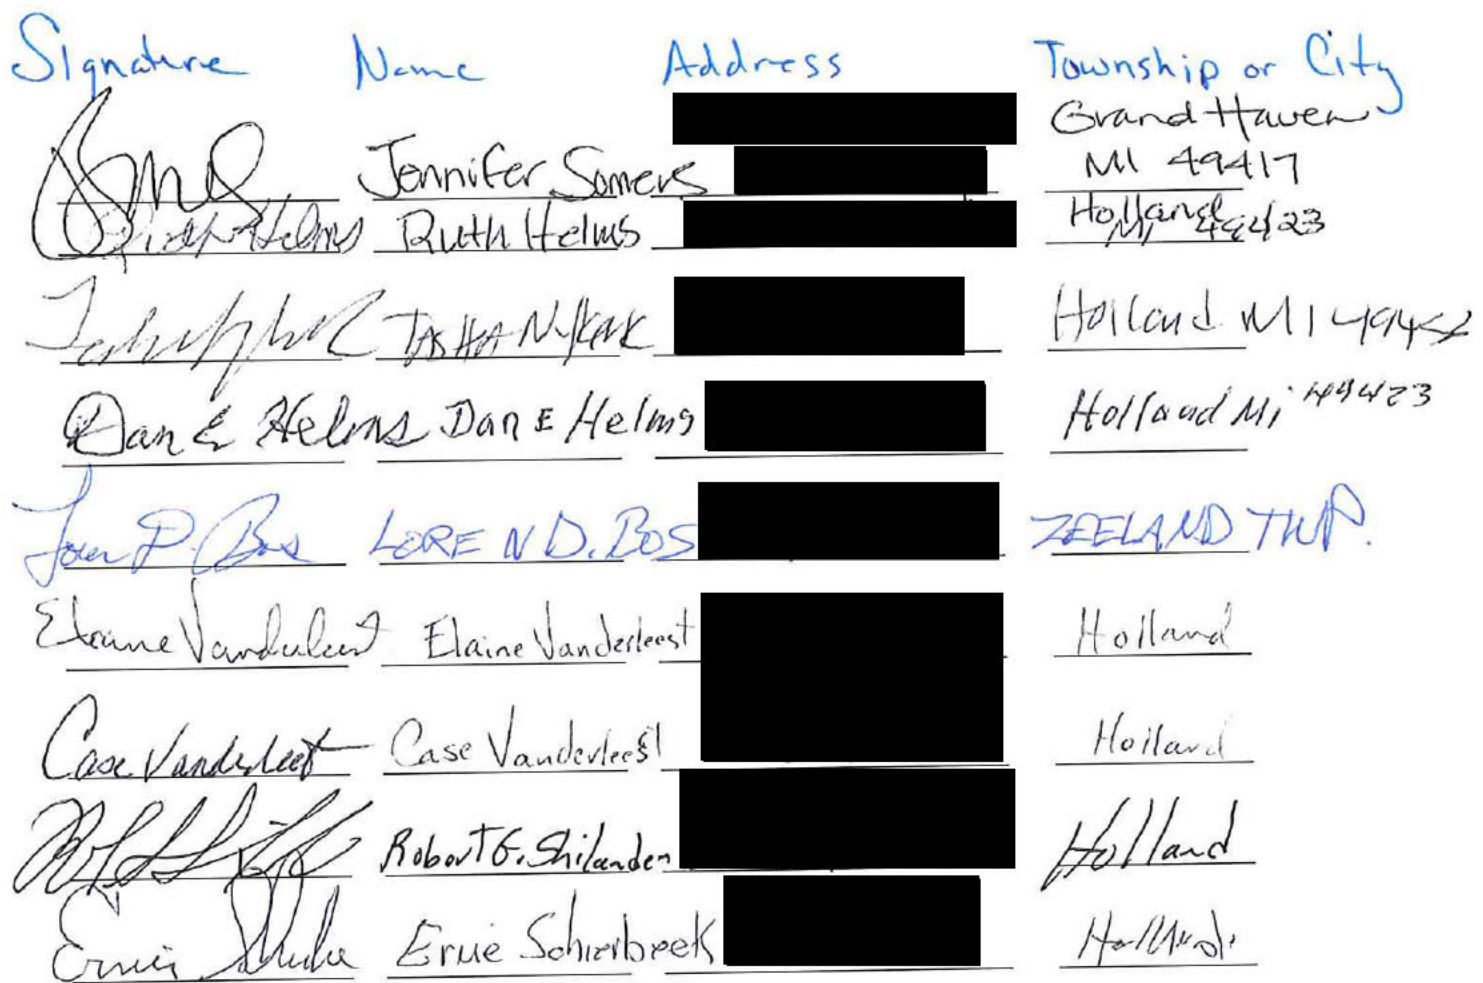 Signature Name Address Township or City
Jennifer Somers Grand Haven
MI 49417
Ruth Helms Ruth Helms Holland
MI 49423
Holland MI
Dan E Helms Dan E Helms Holland Mi 49423
Loren D. Bos LOREN D. BOS ZEELAND TWP.
Elaine Vanderleest Elaine Vanderleest Holland
Case Vanderleest Case Vanderleest Holland
Robert G. Shilander Holland
Ernie Ernie Schierbeek Holland